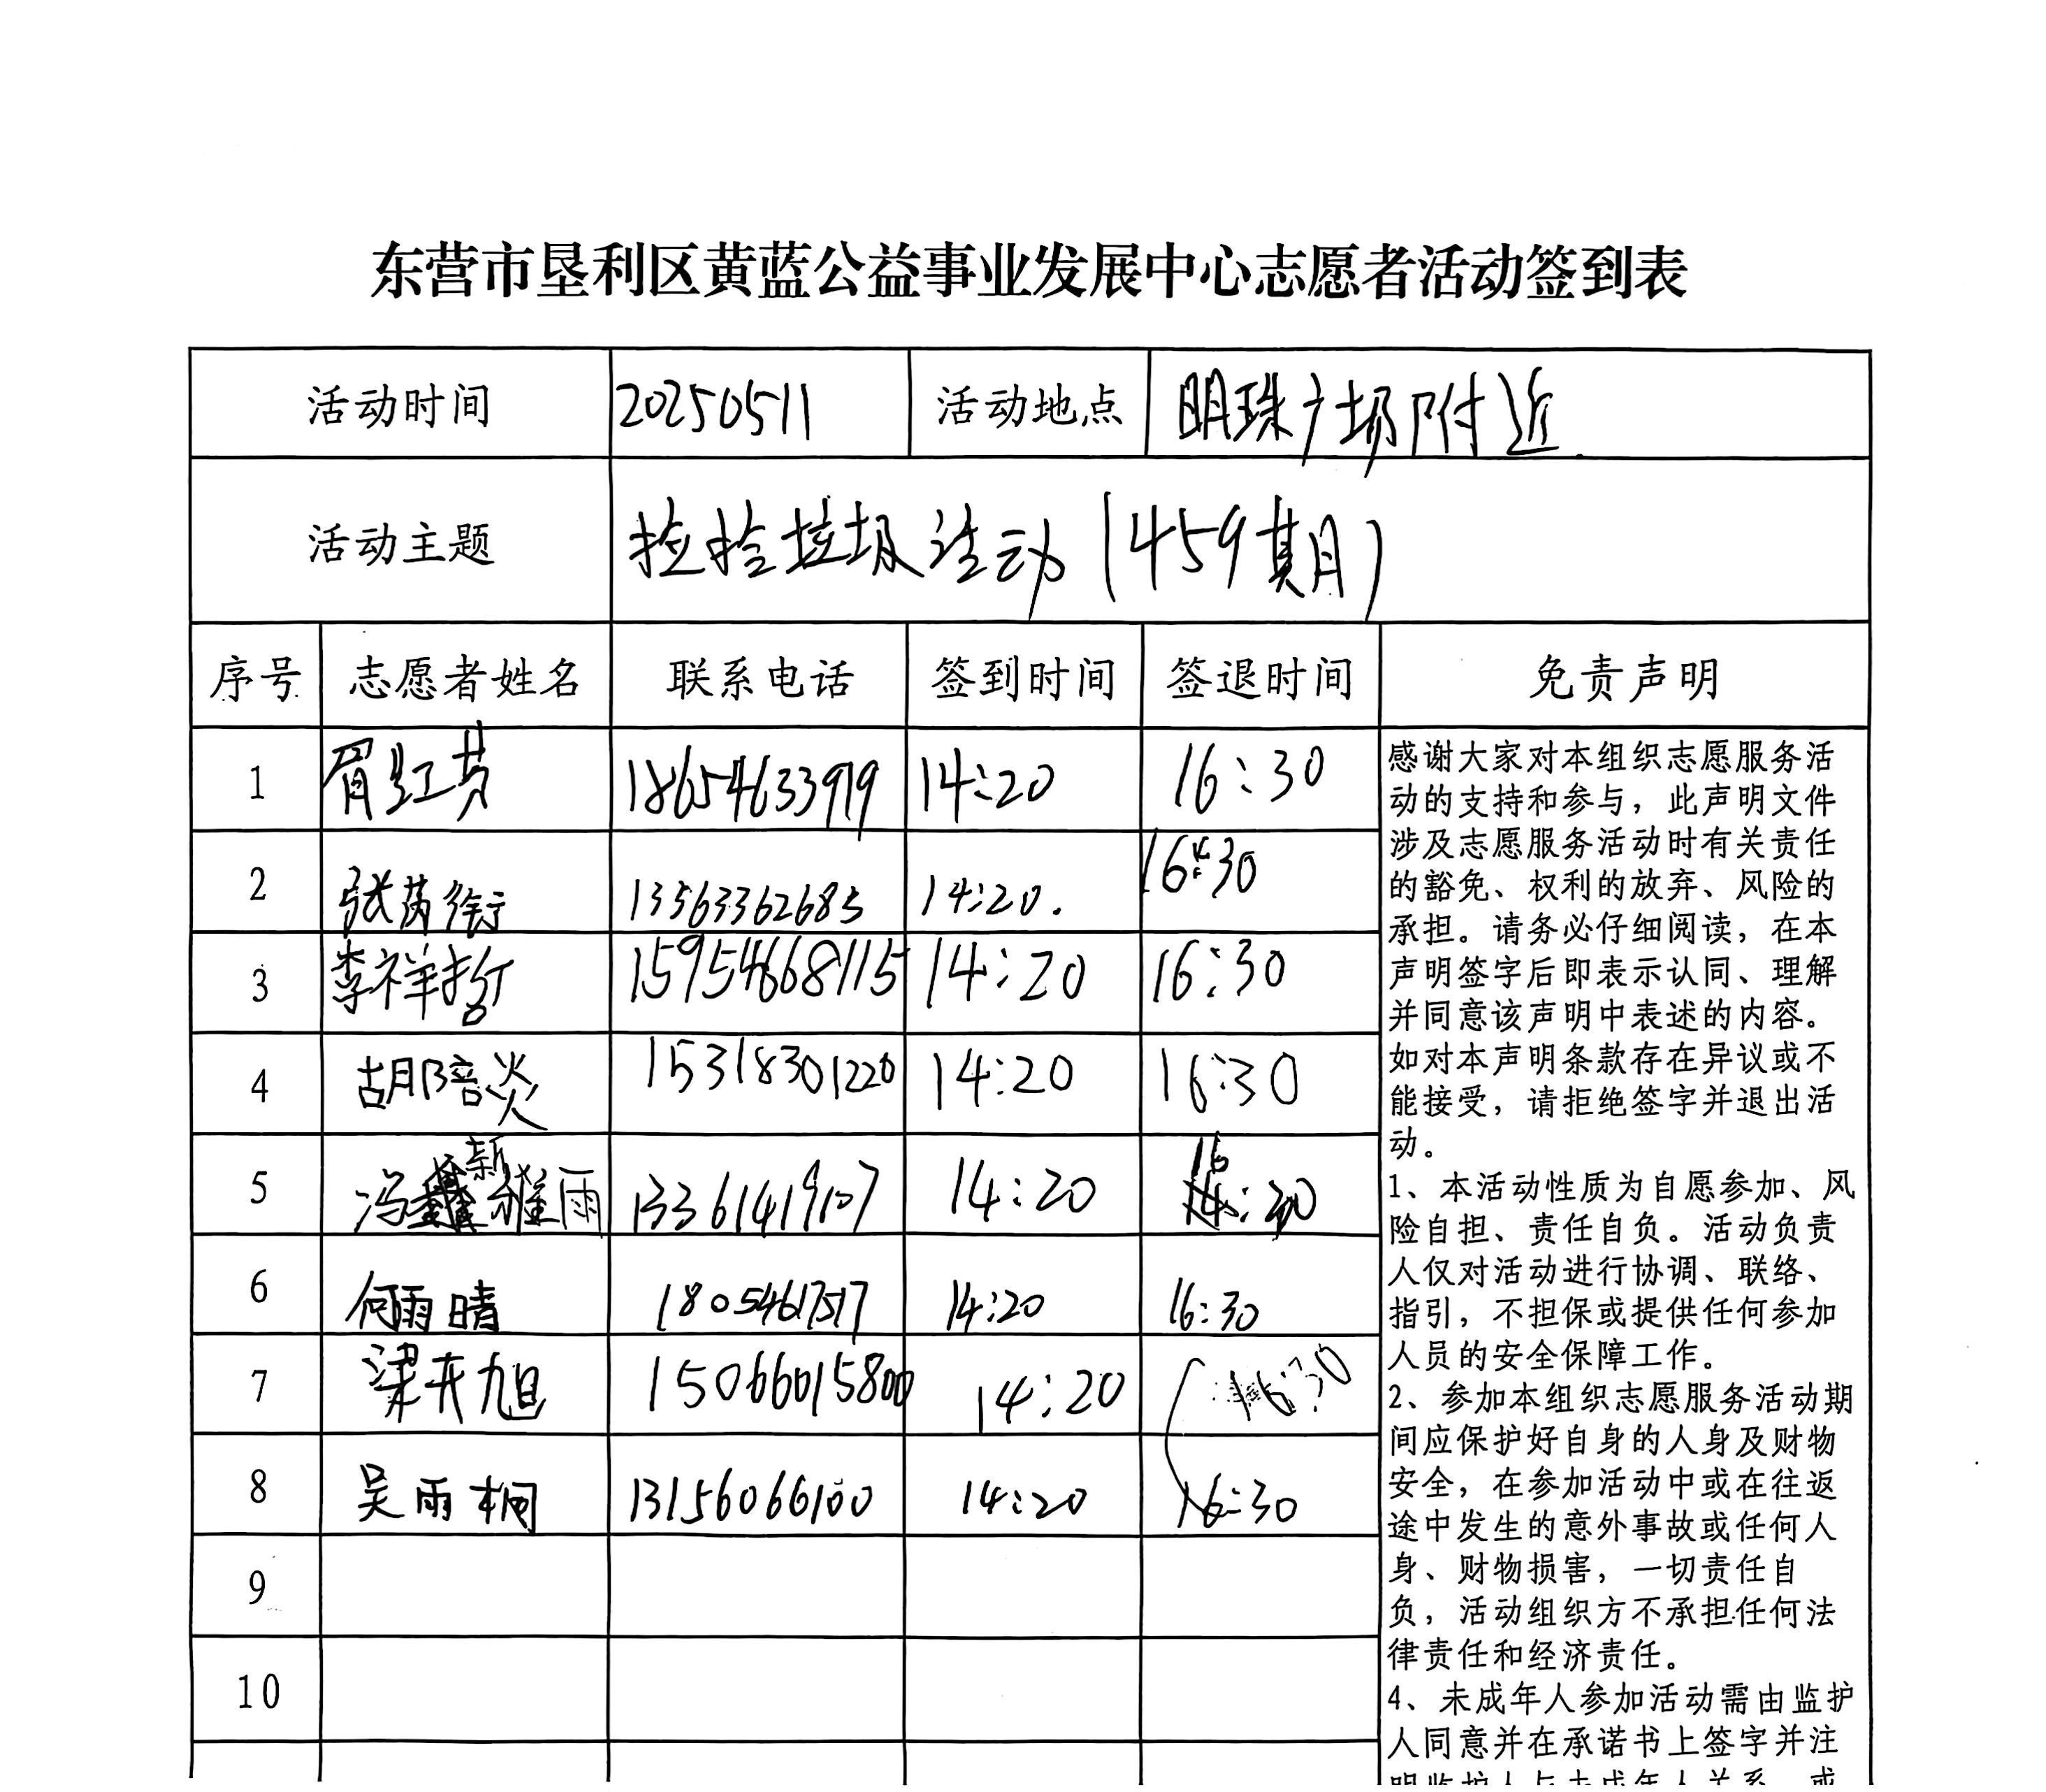 东营市垦利区黄蓝公益事业发展中心志愿者活动签到表
活动时间 20250511 活动地点 明珠广场附近
活动主题 捡捡垃圾活动(459期)
序号 志愿者姓名 联系电话 签到时间 签退时间 免责声明
1 胥红芳 18654633919 14:20 16:30
2 张芮衔 13563362685 14:20. 16:30
3 李祥哲 15954668115 14:20 16:30
4 胡陪炎 15318301220 14:20 16:30
5 冯新雅雨 13361419107 14:20 16:30
6 何雨晴 18054617517 14:20 16:30
7 梁卉旭 15066015800 14:20 16:30
8 吴雨桐 13156066100 14:20 16:30
9
10
感谢大家对本组织志愿服务活
动的支持和参与，此声明文件
涉及志愿服务活动时有关责任
的豁免、权利的放弃、风险的
承担。请务必仔细阅读，在本
声明签字后即表示认同、理解
并同意该声明中表述的内容。
如对本声明条款存在异议或不
能接受，请拒绝签字并退出活
动。
1、本活动性质为自愿参加、风
险自担、责任自负。活动负责
人仅对活动进行协调、联络、
指引，不担保或提供任何参加
人员的安全保障工作。
2、参加本组织志愿服务活动期
间应保护好自身的人身及财物
安全，在参加活动中或在往返
途中发生的意外事故或任何人
身、财物损害，一切责任自
负，活动组织方不承担任何法
律责任和经济责任。
4、未成年人参加活动需由监护
人同意并在承诺书上签字并注
明监护人与未成年人关系，或